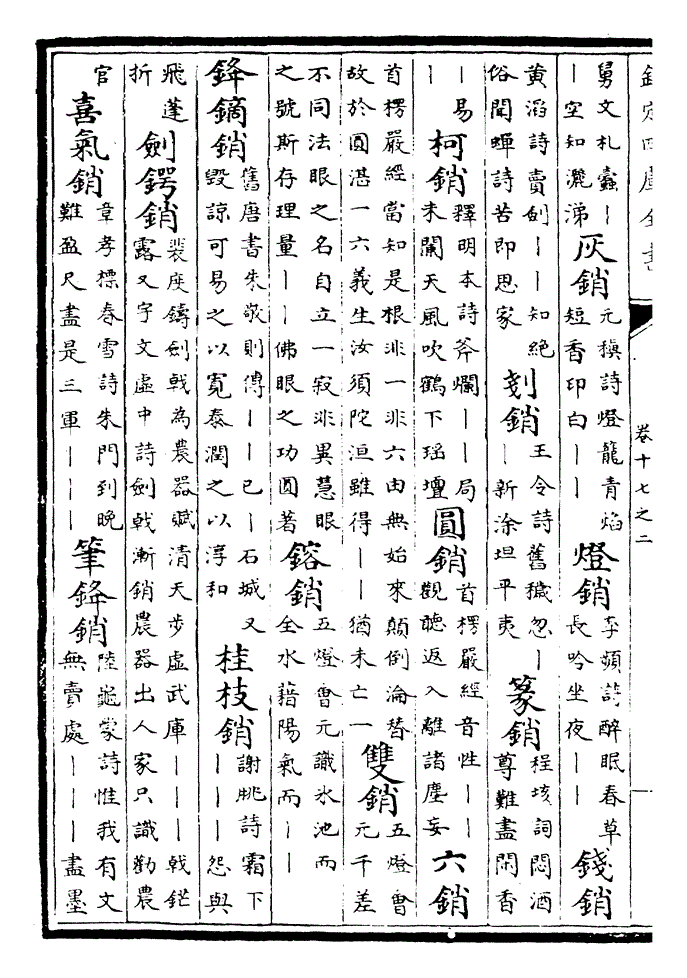 欽定四庫全書
卷十七之二
舅文札蠹｜
｜空知灑涕
灰銷
元稹詩燈籠青焰
短香印白｜｜
燈銷
李頻詩醉眠春草
長吟坐夜｜｜
錢銷
黄滔詩賣劍｜｜知絶
俗聞蟬詩苦即思家
剗銷
王令詩舊穢忽｜
｜新涂坦平夷
篆銷
程垓詞悶酒
尊難盡閒香
｜易
｜
柯銷
釋明本詩斧爛｜｜局
未闌天風吹鶴下瑶壇
圓銷
首楞嚴經音性｜｜
觀聽返入離諸塵妄
六銷
首楞嚴經當知是根非一非六由無始來顛倒淪替
故於圓湛一六義生汝須陀洹雖得｜｜猶未亡一
雙銷
五燈會
元千差
不同法眼之名自立一寂非異慧眼
之號斯存理量｜｜佛眼之功圓著
鎔銷
五燈會元識氷池而
全水藉陽氣而｜｜
鋒鏑銷
舊唐書朱敬則傳｜｜已｜石城又
毁諒可易之以寛泰潤之以淳和
桂枝銷
謝朓詩霜下
｜｜｜怨與
飛蓬
折
劍鍔銷
裴度鑄劍戟為農器賦清天步虚武庫｜｜｜戟鋩
露又宇文虚中詩劍戟漸銷農器出人家只識勸農
官
喜氣銷
章孝標春雪詩朱門到晚
難盈尺盡是三軍｜｜｜
筆鋒銷
陸龜蒙詩惟我有文
無賣處｜｜｜盡墨